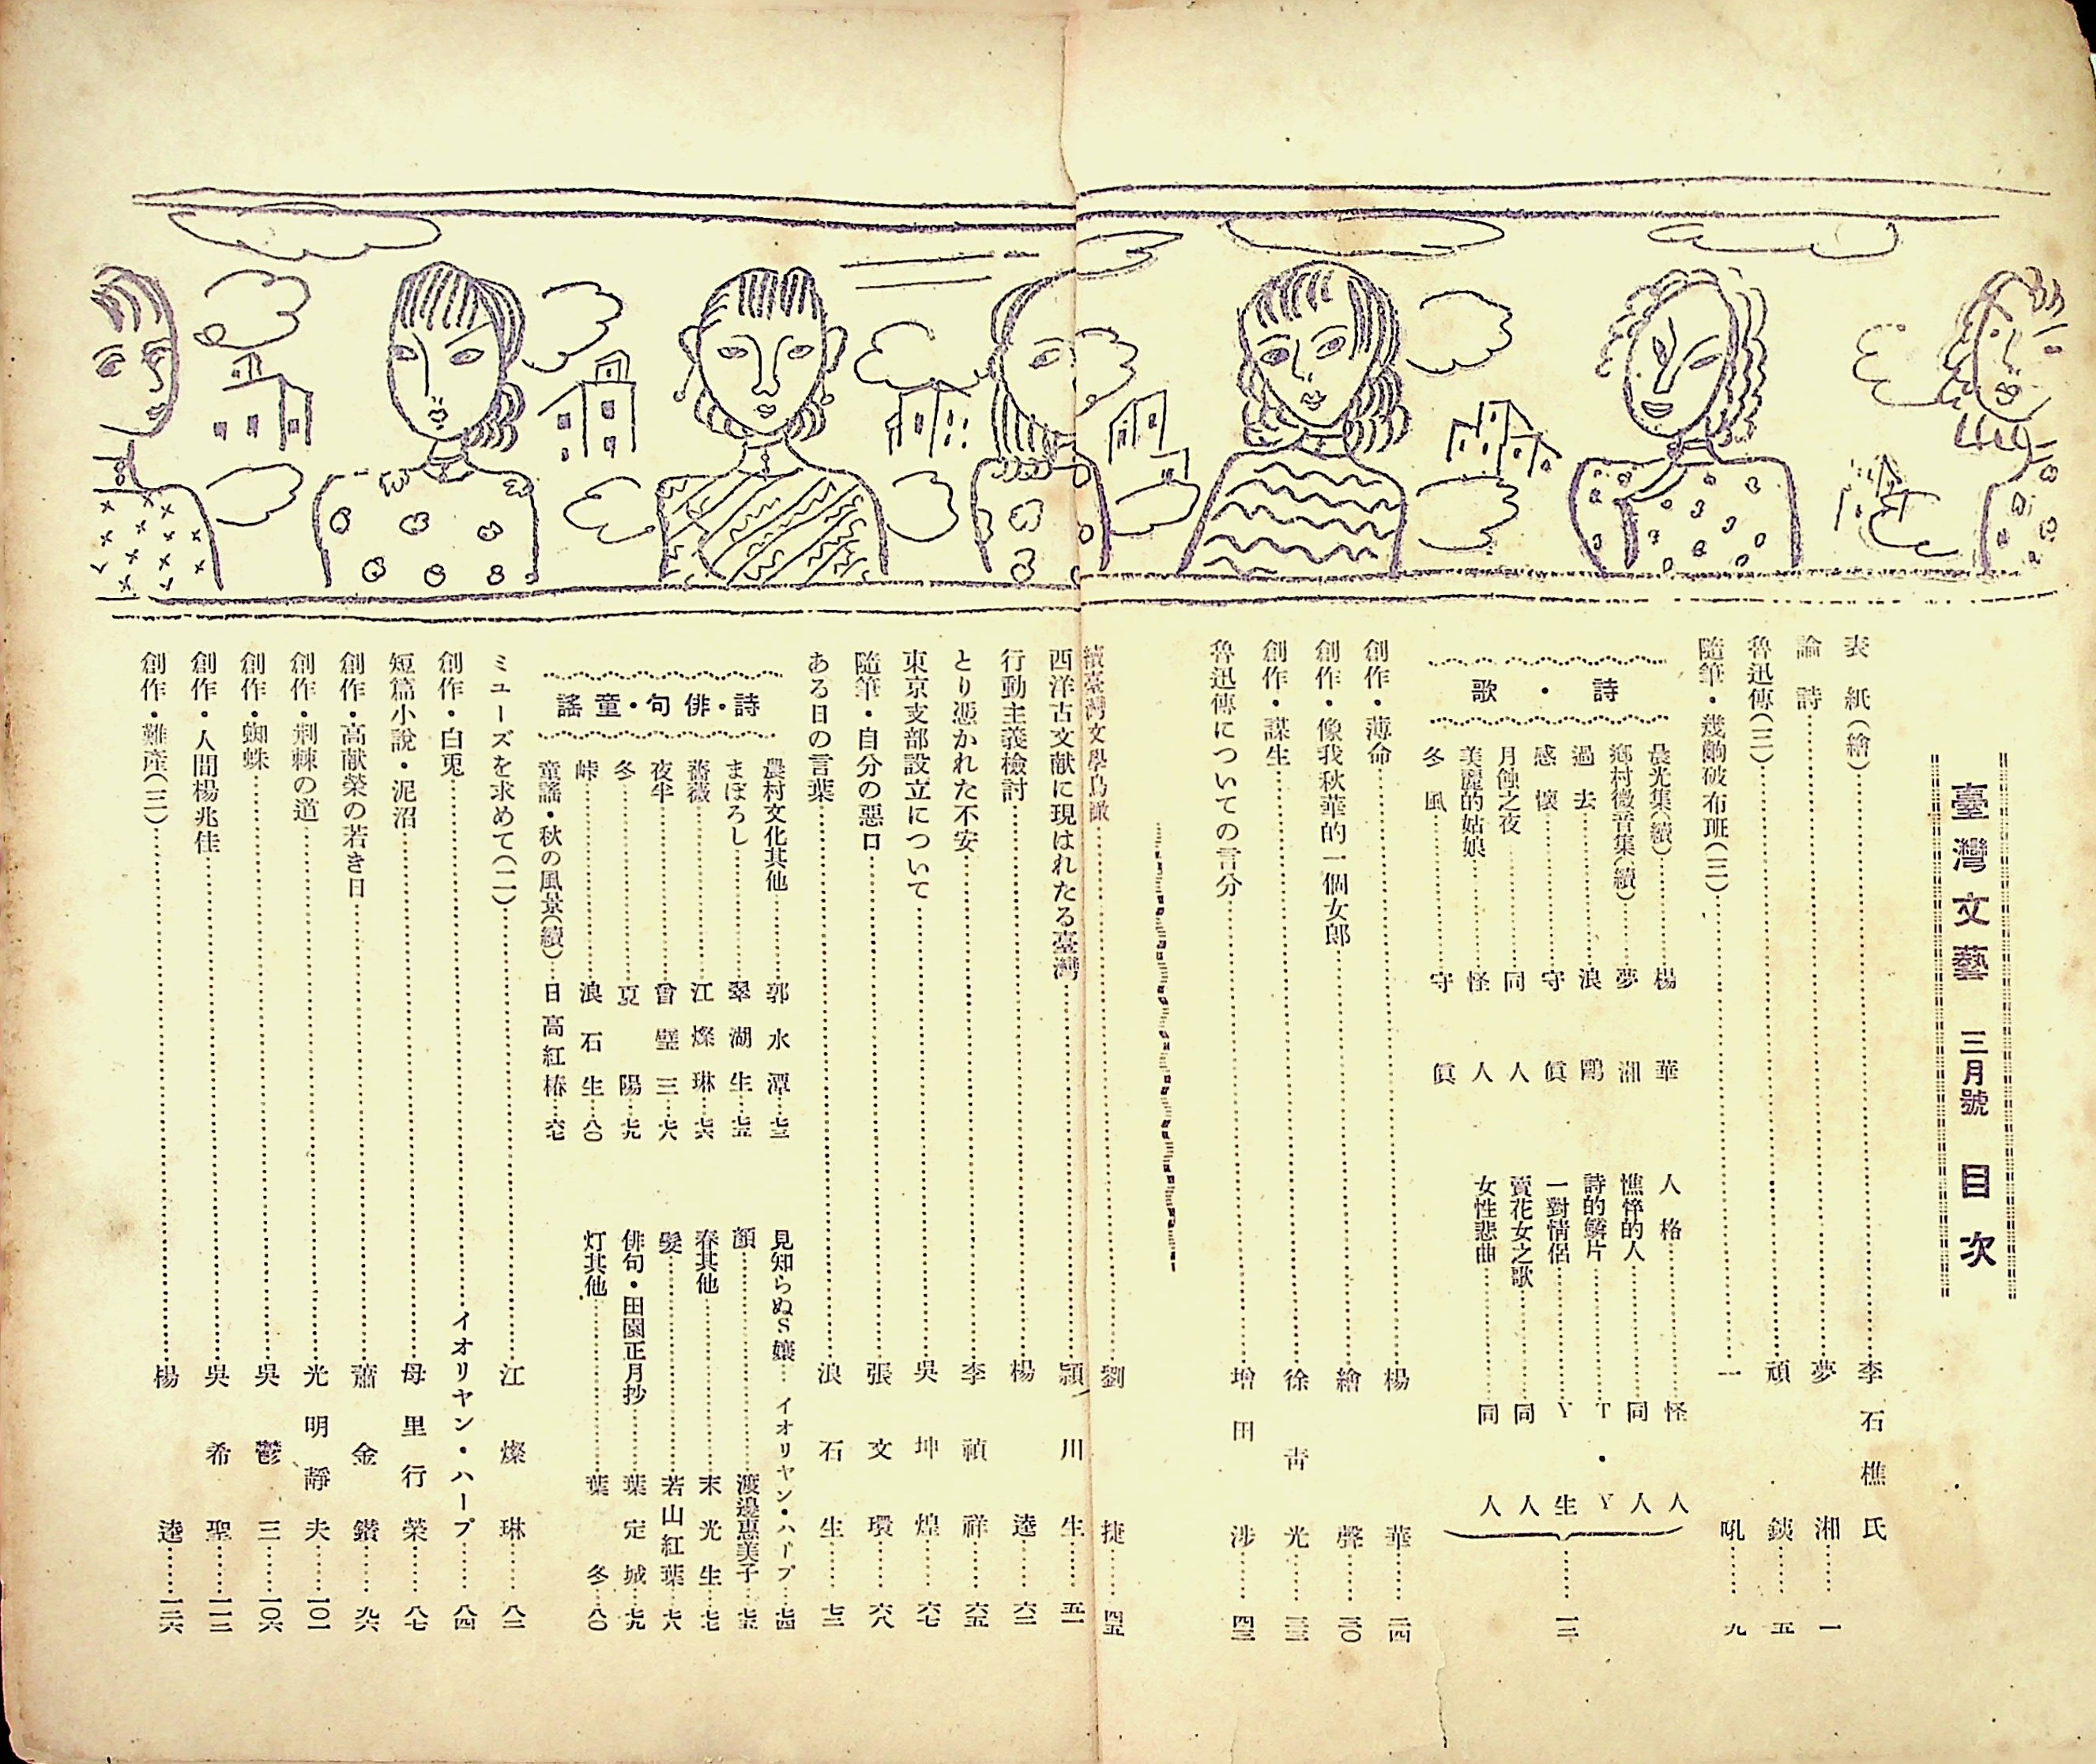 臺灣文藝 三月號 目次
表紙(繪)……李石樵氏
論詩……夢湘……一
魯迅傳(三)……頑銕……五
隨筆・幾齣破布班(三)……一吼……九
詩・歌
晨光集(續)……楊華
鄉村微音集(續)……夢湘
過去……浪鷗
感懷……守眞
月蝕之夜……同人
美麗的姑娘……怪人
冬風……守眞
人格……怪人
憔悴的人……同人
詩的鱗片……T・Y
一對情侶……Y生
賣花女之歌……同人
女性悲曲……同人
……一三
創作・薄命……楊華……二四
創作・像我秋華的一個女郎……繪聲……三〇
創作・謀生……徐靑光……三三
魯迅傳についての言分……增田涉……四三
續臺灣文學鳥瞰……劉捷……四五
西洋古文献に現はれたる臺灣……頴川生……五一
行動主義檢討……楊逵……六二
とり憑かれた不安……李禎祥……六五
東京支部設立について……吳坤煌……六七
隨筆・自分の惡口……張文環……六八
ある日の言葉……浪石生……七三
詩・俳句・童謠
農村文化其他……郭水潭……七三
まぼろし……翠湖生……七五
薔薇……江燦琳……七六
夜半……曾璧三……七八
冬……夏陽……七九
峠……浪石生……八〇
童謠・秋の風景(續)……日高紅椿……六七
見知らぬS孃……イオリヤン・ハープ……七四
顏……渡邉惠美子……七五
春其他……末光生……七七
髮……若山紅葉……七八
俳句・田園正月抄……葉定城……七九
灯其他……葉冬……八〇
ミユーズを求めて(二)……江燦琳……八二
創作・白兎……イオリヤン・ハープ……八四
短篇小說・泥沼……母里行榮……八七
創作・高献榮の若き日……蕭金鑽……九六
創作・荆棘の道……光明靜夫……一〇一
創作・蜘蛛……吳鬱三……一〇六
創作・人間楊兆佳……吳希聖……一一二
創作・難產(三)……楊逵……一二六